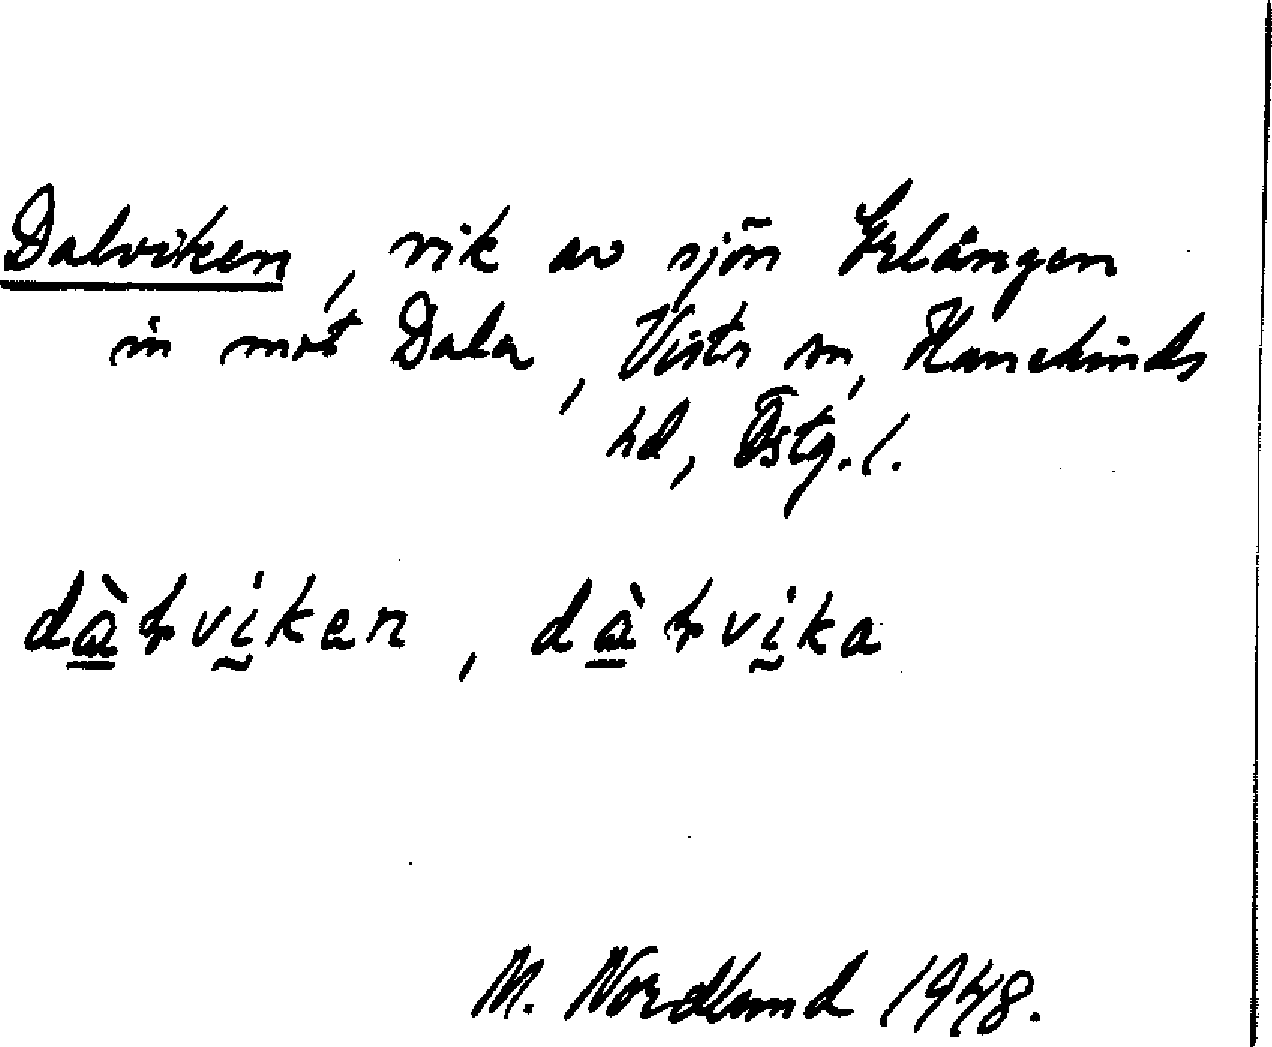 Dalviken, vik av sjön Erlången
in mot Dala, Vists sn, Hanekinds
hd, Östg. l.
dàɫviken, dàɫvika
M. Nordlund 1948.